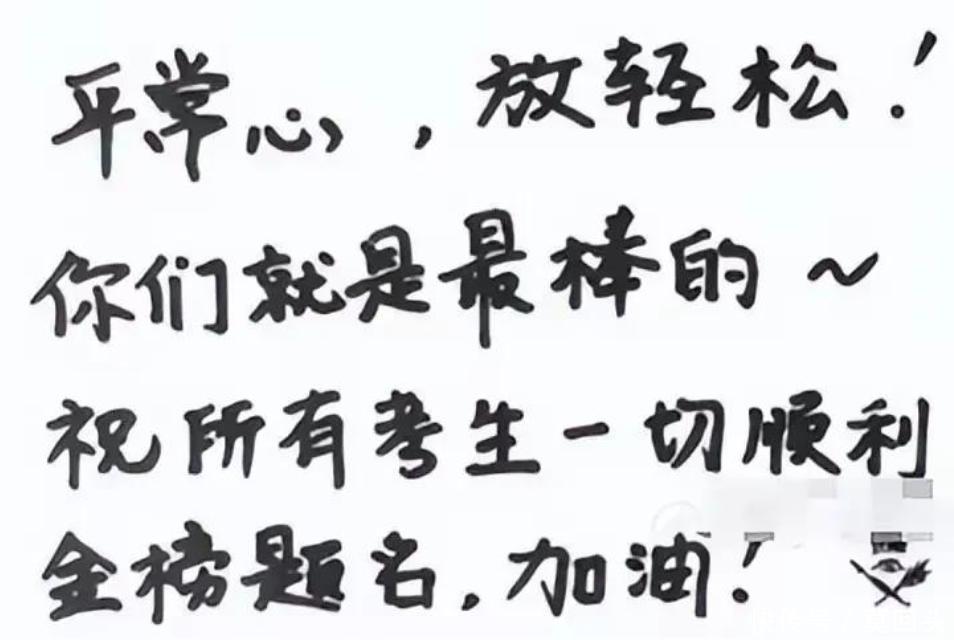 平常心，放轻松！
你们就是最棒的～
祝所有考生一切顺利
金榜题名，加油！